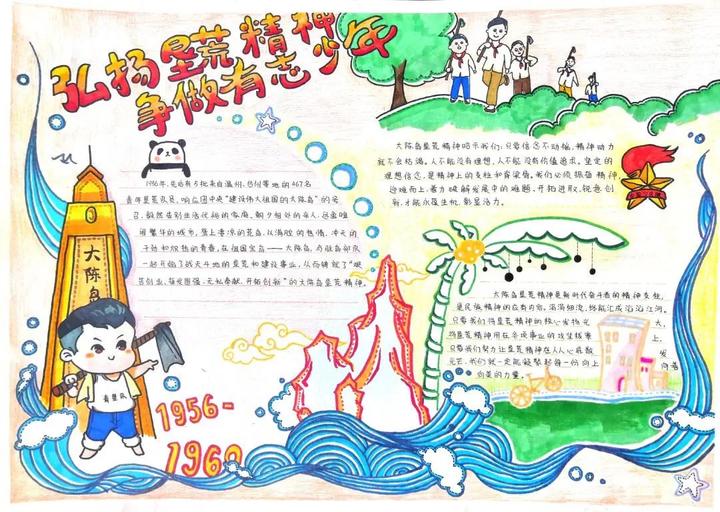 弘扬垦荒精神
争做有志少年
1956年,先后有5批来自温州、台州等地的467名
青年垦荒队员,响应团中央"建设伟大祖国的大陈岛"的号
召,毅然告别生活优裕的家庭、朝夕相处的亲人,远离喧
闹繁华的城市,登上凄凉的荒岛,以满腔的热情、冲天的
干劲和炽热的青春,在祖国宝岛——大陈岛,与驻岛部队
一起开始了战天斗地的垦荒和建设事业,从而铸就了"艰
苦创业、奋发图强、无私奉献、开拓创新"的大陈岛垦荒精神.
大陈岛垦荒精神昭示我们:只要信念不动摇,精神动力
就不会枯竭.人不能没有理想,人不能没有价值追求,坚定的
理想信念,是精神上的支柱和脊梁骨.我们必须振奋精神,
迎难而上,着力破解发展中的难题、开拓进取、锐意创
新,才能永葆生机、彰显活力.
大陈岛垦荒精神是新时代奋斗者的精神支柱,
是民族精神的应有内容.涓涓细流,终能汇成滔滔江河.
只要我们将垦荒精神的核心发扬光大,
将垦荒精神用在各项事业的攻坚拔寨上,
只要我们努力让垦荒精神在人人心底散发
光芒,我们就一定能凝聚起每一份向上向善
向美的力量.
大陈岛
青垦队
1956-
1960